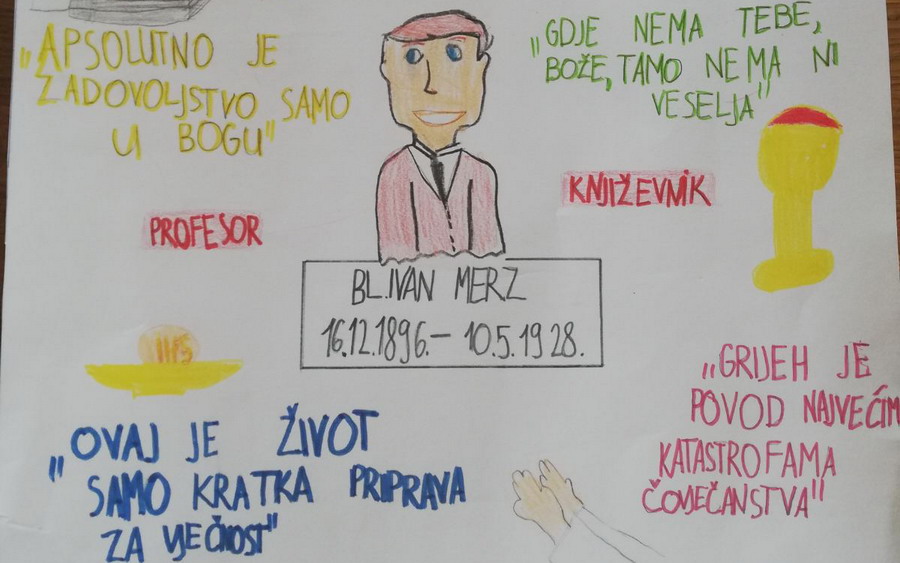 „APSOLUTNO JE
ZADOVOLJSTVO SAMO
U BOGU"
„GDJE NEMA TEBE,
BOŽE, TAMO NEMA NI
VESELJA"
PROFESOR
KNJIŽEVNIK
BL.IVAN MERZ
16.12.1896.– 10.5.1928.
IHS
„OVAJ JE ŽIVOT
SAMO KRATKA PRIPRAVA
ZA VJEČNOST"
„GRIJEH JE
POVOD NAJVEĆIM
KATASTROFAMA
ČOVJEČANSTVA"